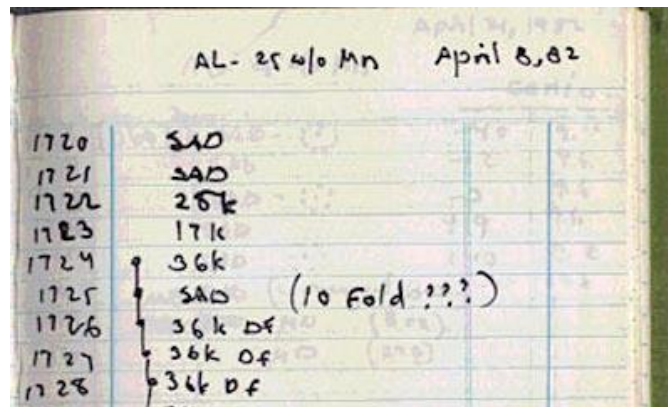 AL-25 w/o Mn April 8,82
1720 SAD
1721 SAD
1722 25k
1723 17k
1724 36k
1725 SAD (10 Fold ???)
1726 36k DF
1727 36k DF
1728 36k DF